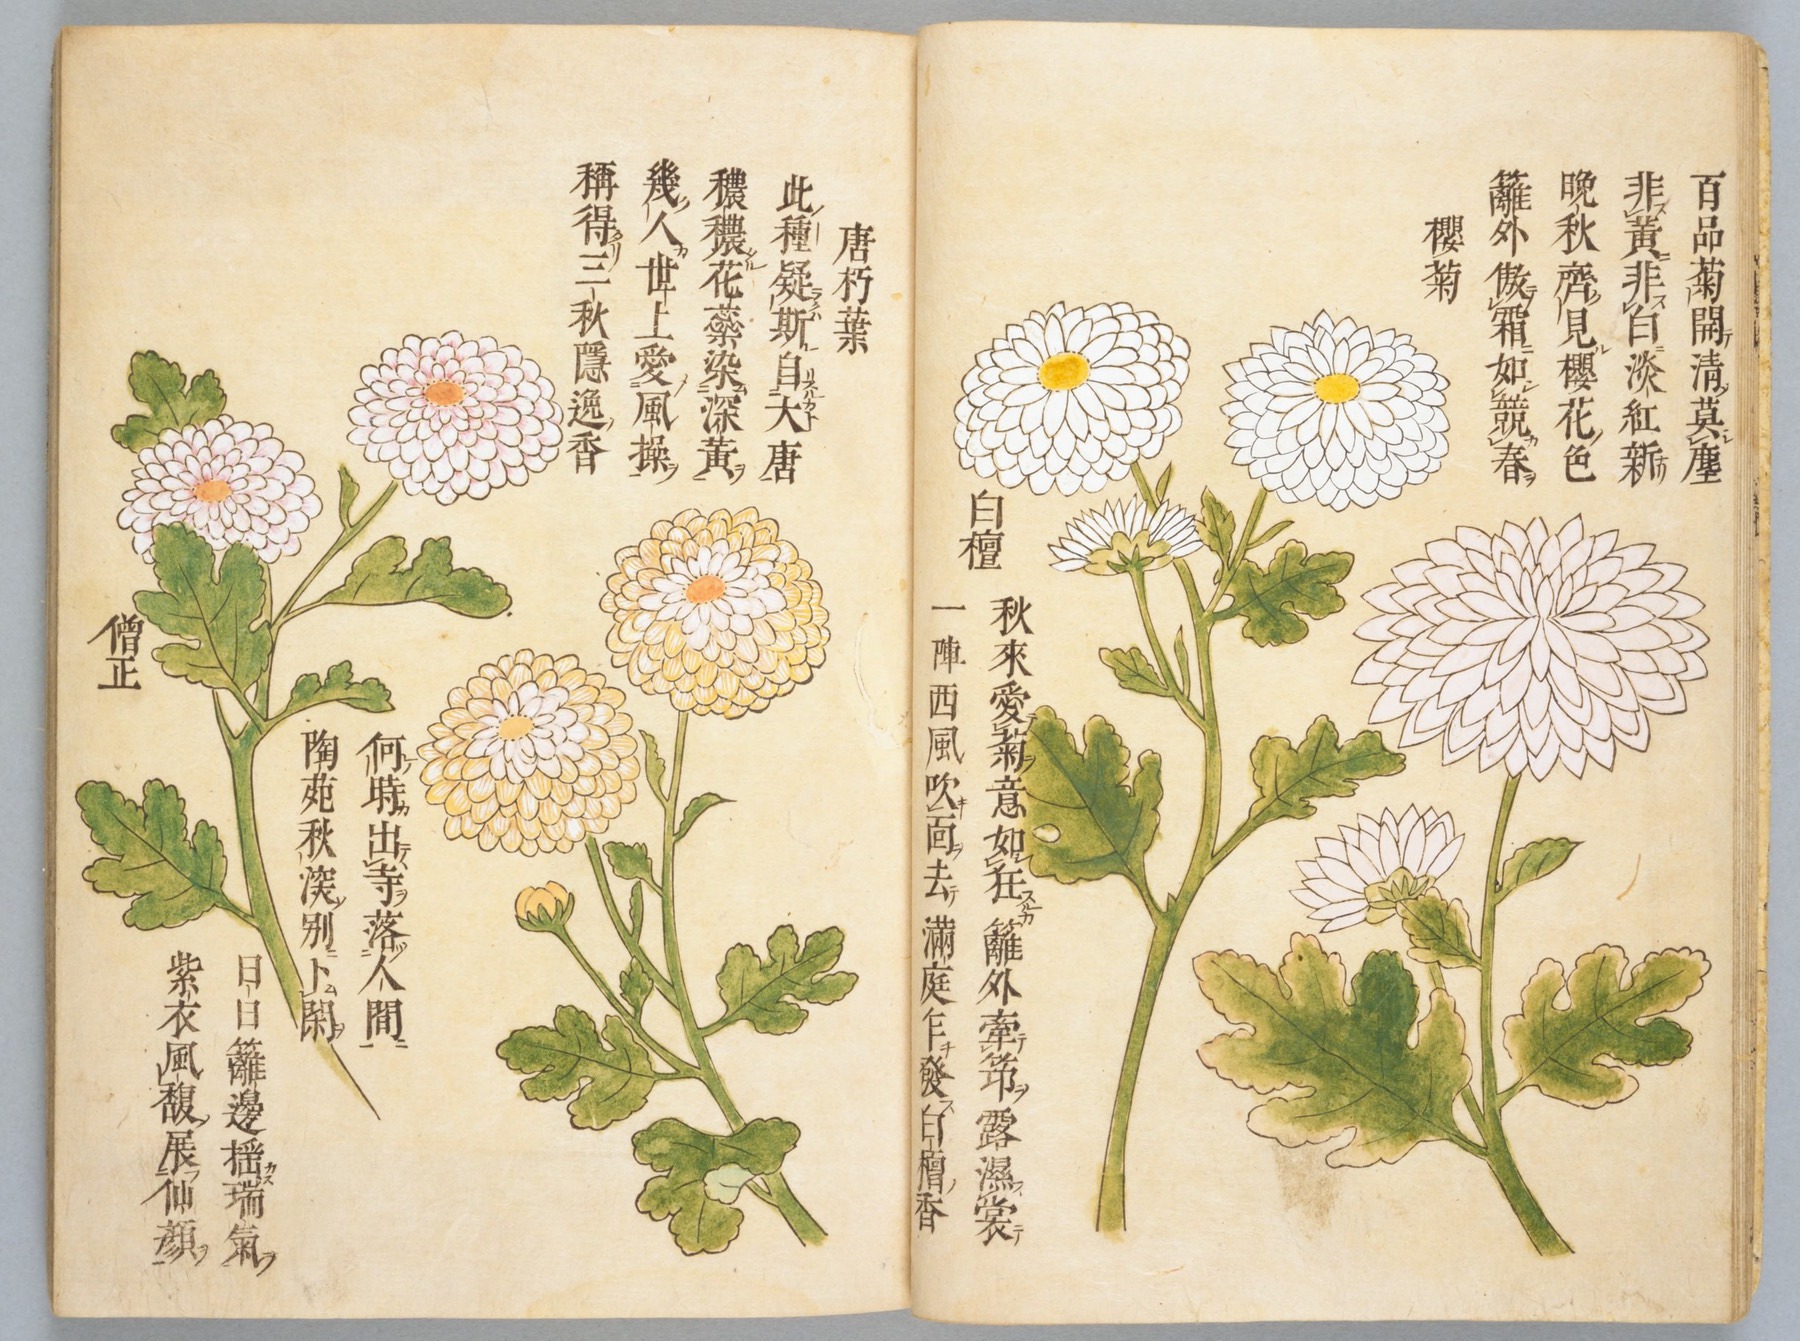 百品菊開清莫塵
非黃非白淡紅新
晩秋齊見櫻花色
籬外傲霜如競春
櫻菊
白檀
秋來愛菊意如狂 籬外牽筇露濕裳
一陣西風吹靣去 滿庭乍發白檀香
唐朽葉
此種凝斯自大唐
穠穠花蘂染深黃
幾人世上愛風操
稱得三秋隱逸香
何時出寺落人間
陶苑秋深别卜閑
日日籬邊揺瑞氣
紫衣風馥展仙顏
僧正